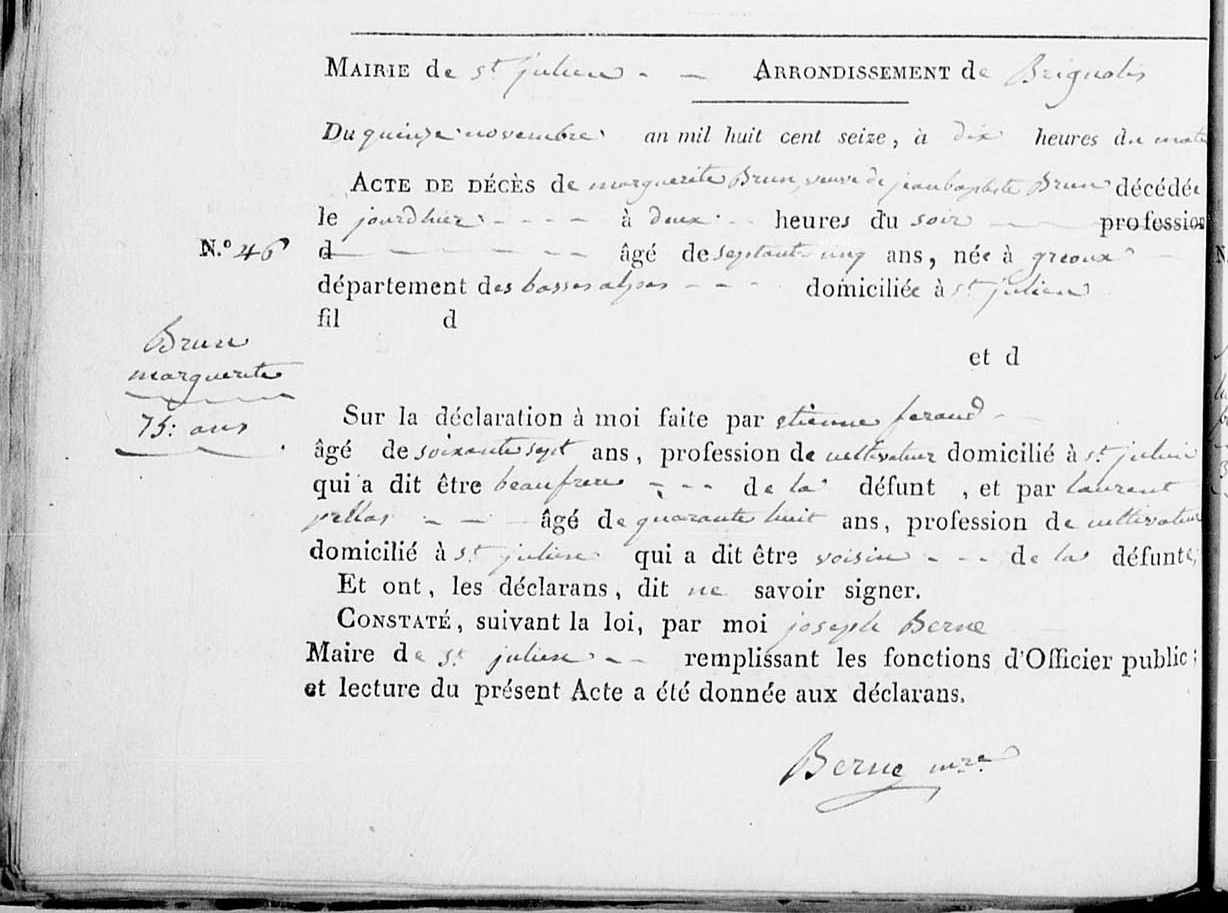 MAIRIE de st julien - - ARRONDISSEMENT de Brignolis
Du quinze novembre an mil huit cent seize, à dix heures du mat
ACTE DE DÉCÈS de marguerite Brun, veuve de jean baptiste Brun décédée
le jourdhier - - - - à deux - - heures du soir - - profession
N.° 46 d - - - - - - âgé de septante cinq ans, née à greoux
département des basses alpes - - - domiciliée à st julien
fil d
et d
Brun
marguerite
75: ans
Sur la déclaration à moi faite par etienne feraud -
âgé de soixante sept ans, profession de cultivateur domicilié à st julien
qui a dit être beaufrere - - - de la défunt , et par laurent
pellas - - - âgé de quarante huit ans, profession de cultivateur
domicilié à st julien qui a dit être voisin - - - de la défunte,
Et ont, les déclarans, dit ne savoir signer.
CONSTATÉ, suivant la loi, par moi joseph Berne
Maire de st julien - - remplissant les fonctions d'Officier public;
et lecture du présent Acte a été donnée aux déclarans.
Berne mre